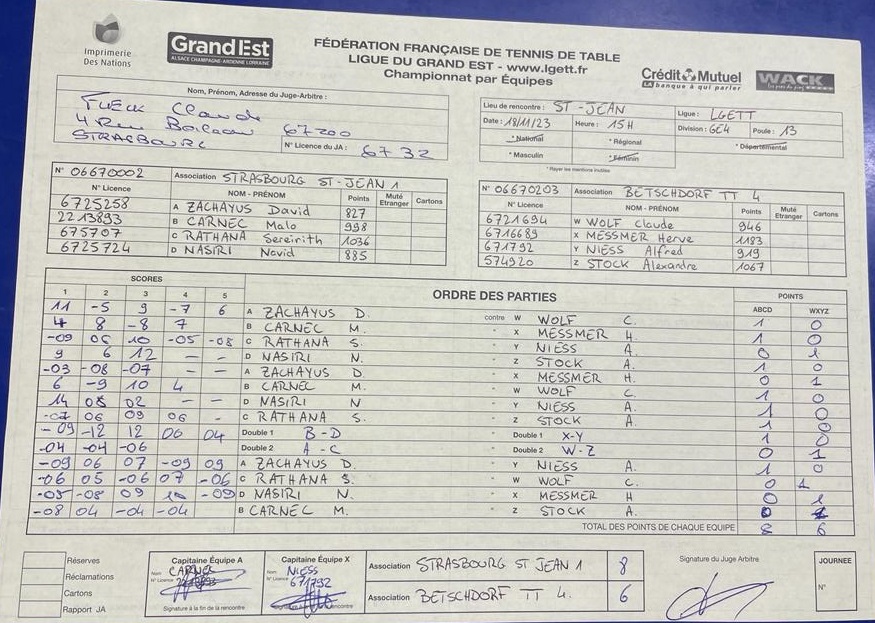 Imprimerie
Des Nations
GrandEst
ALSACE CHAMPAGNE-ARDENNE LORRAINE
FÉDÉRATION FRANÇAISE DE TENNIS DE TABLE
LIGUE DU GRAND EST - www.lgett.fr
Championnat par Équipes
Crédit Mutuel
LA banque à qui parler
WACK
Nom, Prénom, Adresse du Juge-Arbitre :
Claude
4 Rue Boileau 67200
STRASBOURG
N° Licence du JA : 6732
Lieu de rencontre : ST-JEAN
Ligue : LGETT
Date : 18/11/23 Heure : 15H Division : GE4 Poule : 13
* National * Régional * Départemental
* Masculin * Féminin
* Rayer les mentions inutiles
N° 06670002 Association STRASBOURG ST-JEAN 1
N° Licence NOM - PRÉNOM Points Muté Etranger Cartons
6725258 A ZACHAYUS David 827
2213893 B CARNEC Malo 998
675707 C RATHANA Sereirith 1036
6725724 D NASIRI Navid 885
N° 06670203 Association BETSCHDORF TT 4
N° Licence NOM - PRÉNOM Points Muté Etranger Cartons
6721694 W WOLF Claude 946
6716689 X MESSMER Herve 1183
671792 Y NIESS Alfred 919
574920 Z STOCK Alexandre 1067
SCORES ORDRE DES PARTIES POINTS
1 2 3 4 5 ABCD WXYZ
11 -5 9 -7 6 A ZACHAYUS D. contre W WOLF C. 1 0
4 8 -8 7 B CARNEC M. " X MESSMER H. 1 0
-09 06 10 -05 -08 C RATHANA S. " Y NIESS A. 0 1
9 6 12 - - D NASIRI N. " Z STOCK A. 1 0
-03 -08 -07 A ZACHAYUS D. " X MESSMER H. 0 1
6 -9 10 4 B CARNEC M. " W WOLF C. 1 0
14 08 02 - - D NASIRI N " Y NIESS A. 1 0
-07 06 09 06 - C RATHANA S. " Z STOCK A. 1 0
-09 -12 12 06 04 Double 1 B-D " Double 1 X-Y 1 0
-04 -04 -06 Double 2 A-C " Double 2 W-Z 0 1
-09 06 07 -09 09 A ZACHAYUS D. " Y NIESS A. 1 0
-06 05 -06 07 -06 C RATHANA S. " W WOLF C. 0 1
-05 -08 09 10 -09 D NASIRI N. " X MESSMER H 0 1
-08 04 -04 -04 B CARNEC M. " Z STOCK A. 0 1
TOTAL DES POINTS DE CHAQUE EQUIPE 8 6
Réserves
Réclamations
Cartons
Rapport JA
Capitaine Équipe A
Nom CARNEC
N° Licence 2213893
Signature à la fin de la rencontre
Capitaine Équipe X
Nom NIESS
N° Licence 671792
Association STRASBOURG ST JEAN 1 8
Association BETSCHDORF TT 4. 6
Signature du Juge Arbitre
JOURNEE
N°